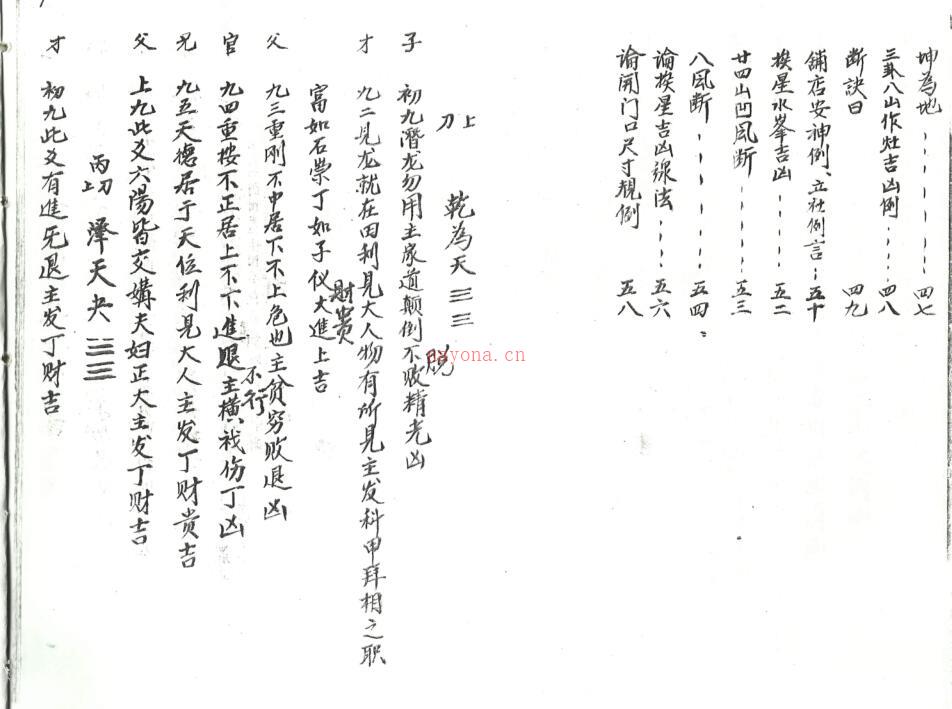 坤為地 四七
三卦八山作灶吉凶例 四八
断訣曰 四九
铺店安神例、立社例言 五十
挨星水峯吉凶 五二
廿四山凹風断 五三
八風断 五四
论挨星吉凶線法 五六
论開门口尺寸规例 五八
乾為天 ☰☰
子 初九潛龙勿用主家道颠倒不败精光凶
才 九二見龙就在田利見大人物有所見主发科甲拜相之职
富如石崇丁如子仪大進上吉
財貴
父 九三重刚不中居下不上危也主贫穷败退凶
不行
官 九四重按不正居上不下進退主橫祸伤丁凶
兄 九五天德居于天位利見大人主发丁财贵吉
父 上九此爻六陽皆交媾夫妇正大主发丁财吉
丙上 泽天夬
才 初九此爻有進无退主发丁财吉
nayona.cn